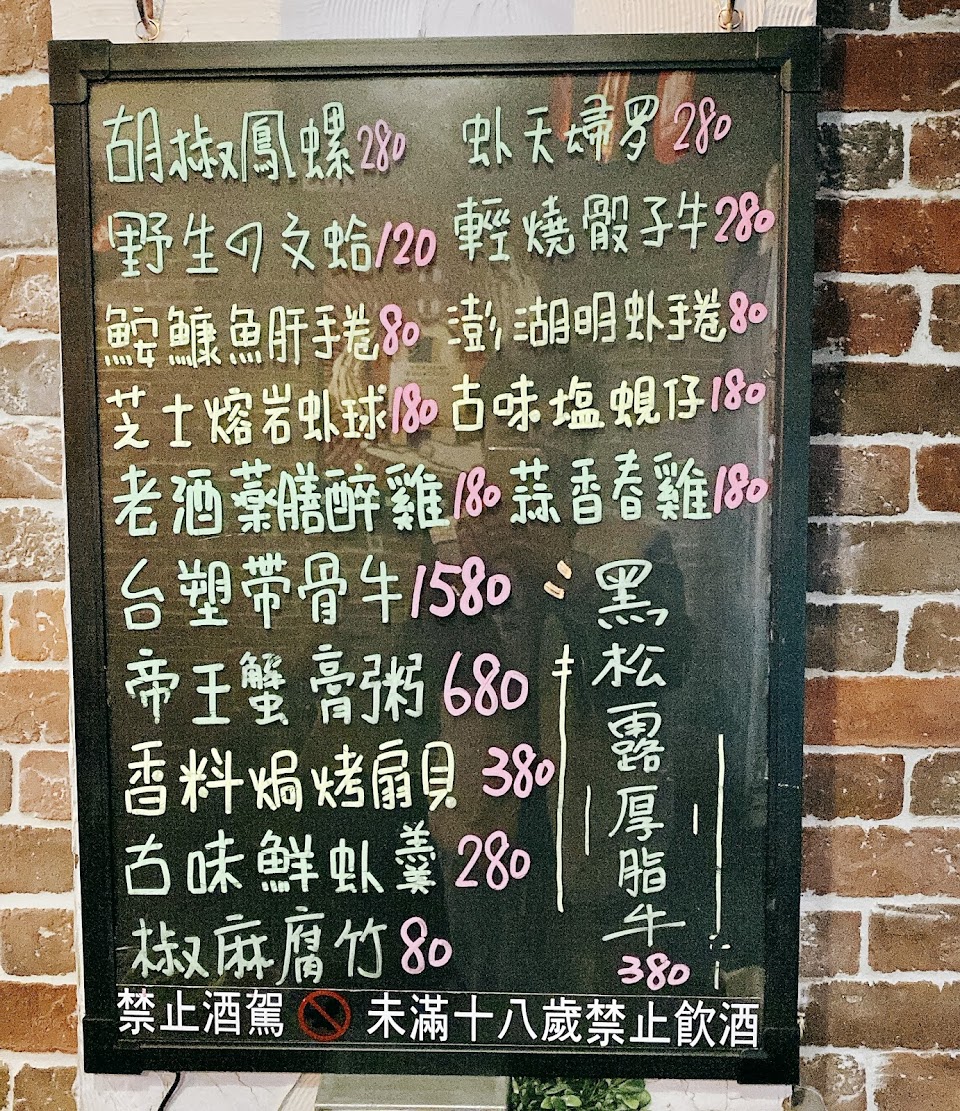 胡椒鳳螺280 虾天婦罗280
野生の文蛤120 輕燒骰子牛280
鮟鱇魚肝手卷80 澎湖明虾手卷80
芝士熔岩虾球180 古味塩蜆仔180
老酒薬膳醉雞180 蒜香春雞180
台塑帶骨牛1580
帝王蟹膏粥680
香料焗烤扇貝380
古味鮮虾羹280
椒麻腐竹80
黑松露厚脂牛
380
禁止酒駕 未滿十八歲禁止飲酒